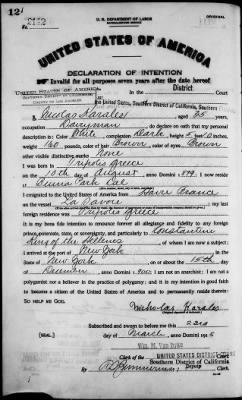 12
U. S. DEPARTMENT OF LABOR
NATURALIZATION SERVICE
ORIGINAL
No. 2142
UNITED STATES OF AMERICA
DECLARATION OF INTENTION
Invalid for all purposes seven years after the date hereof
UNITED STATES OF AMERICA
District Court
SOUTHERN DISTRICT OF CALIFORNIA
COUNTY OF LOS ANGELES
the United States, Southern District of California, Southern
I, Nicolas Harales, aged 35 years,
occupation Dairyman, do declare on oath that my personal
description is: Color White, complexion Dark, height 5 feet inches,
weight 140 pounds, color of hair Brown, color of eyes Brown
other visible distinctive marks None
I was born in Tripolis Greece
on the 10th day of August, anno Domini 1 879; I now reside
at Cal
I emigrated to the United States of America from Havre France
on the vessel La Savoie; my last
foreign residence was Tripolis Greece
It is my bona fide intention to renounce forever all allegiance and fidelity to any foreign
prince, potentate, state, or sovereignty, and particularly to Constantine
King of the Hellenes, of whom I am now a subject;
I arrived at the port of New York, in the
State of New York, on or about the 15th day
of December, anno Domini 1 ; I am not an anarchist; I am not a
polygamist nor a believer in the practice of polygamy; and it is my intention in good faith
to become a citizen of the United States of America and to permanently reside therein:
SO HELP ME GOD.
Nicholas Harales
Subscribed and sworn to before me this 23rd
[SEAL] day of March, anno Domini 191
Wm. M. Van Dyke
Clerk of the UNITED STATES DISTRICT COURT
Southern District of California
By Deputy Clerk